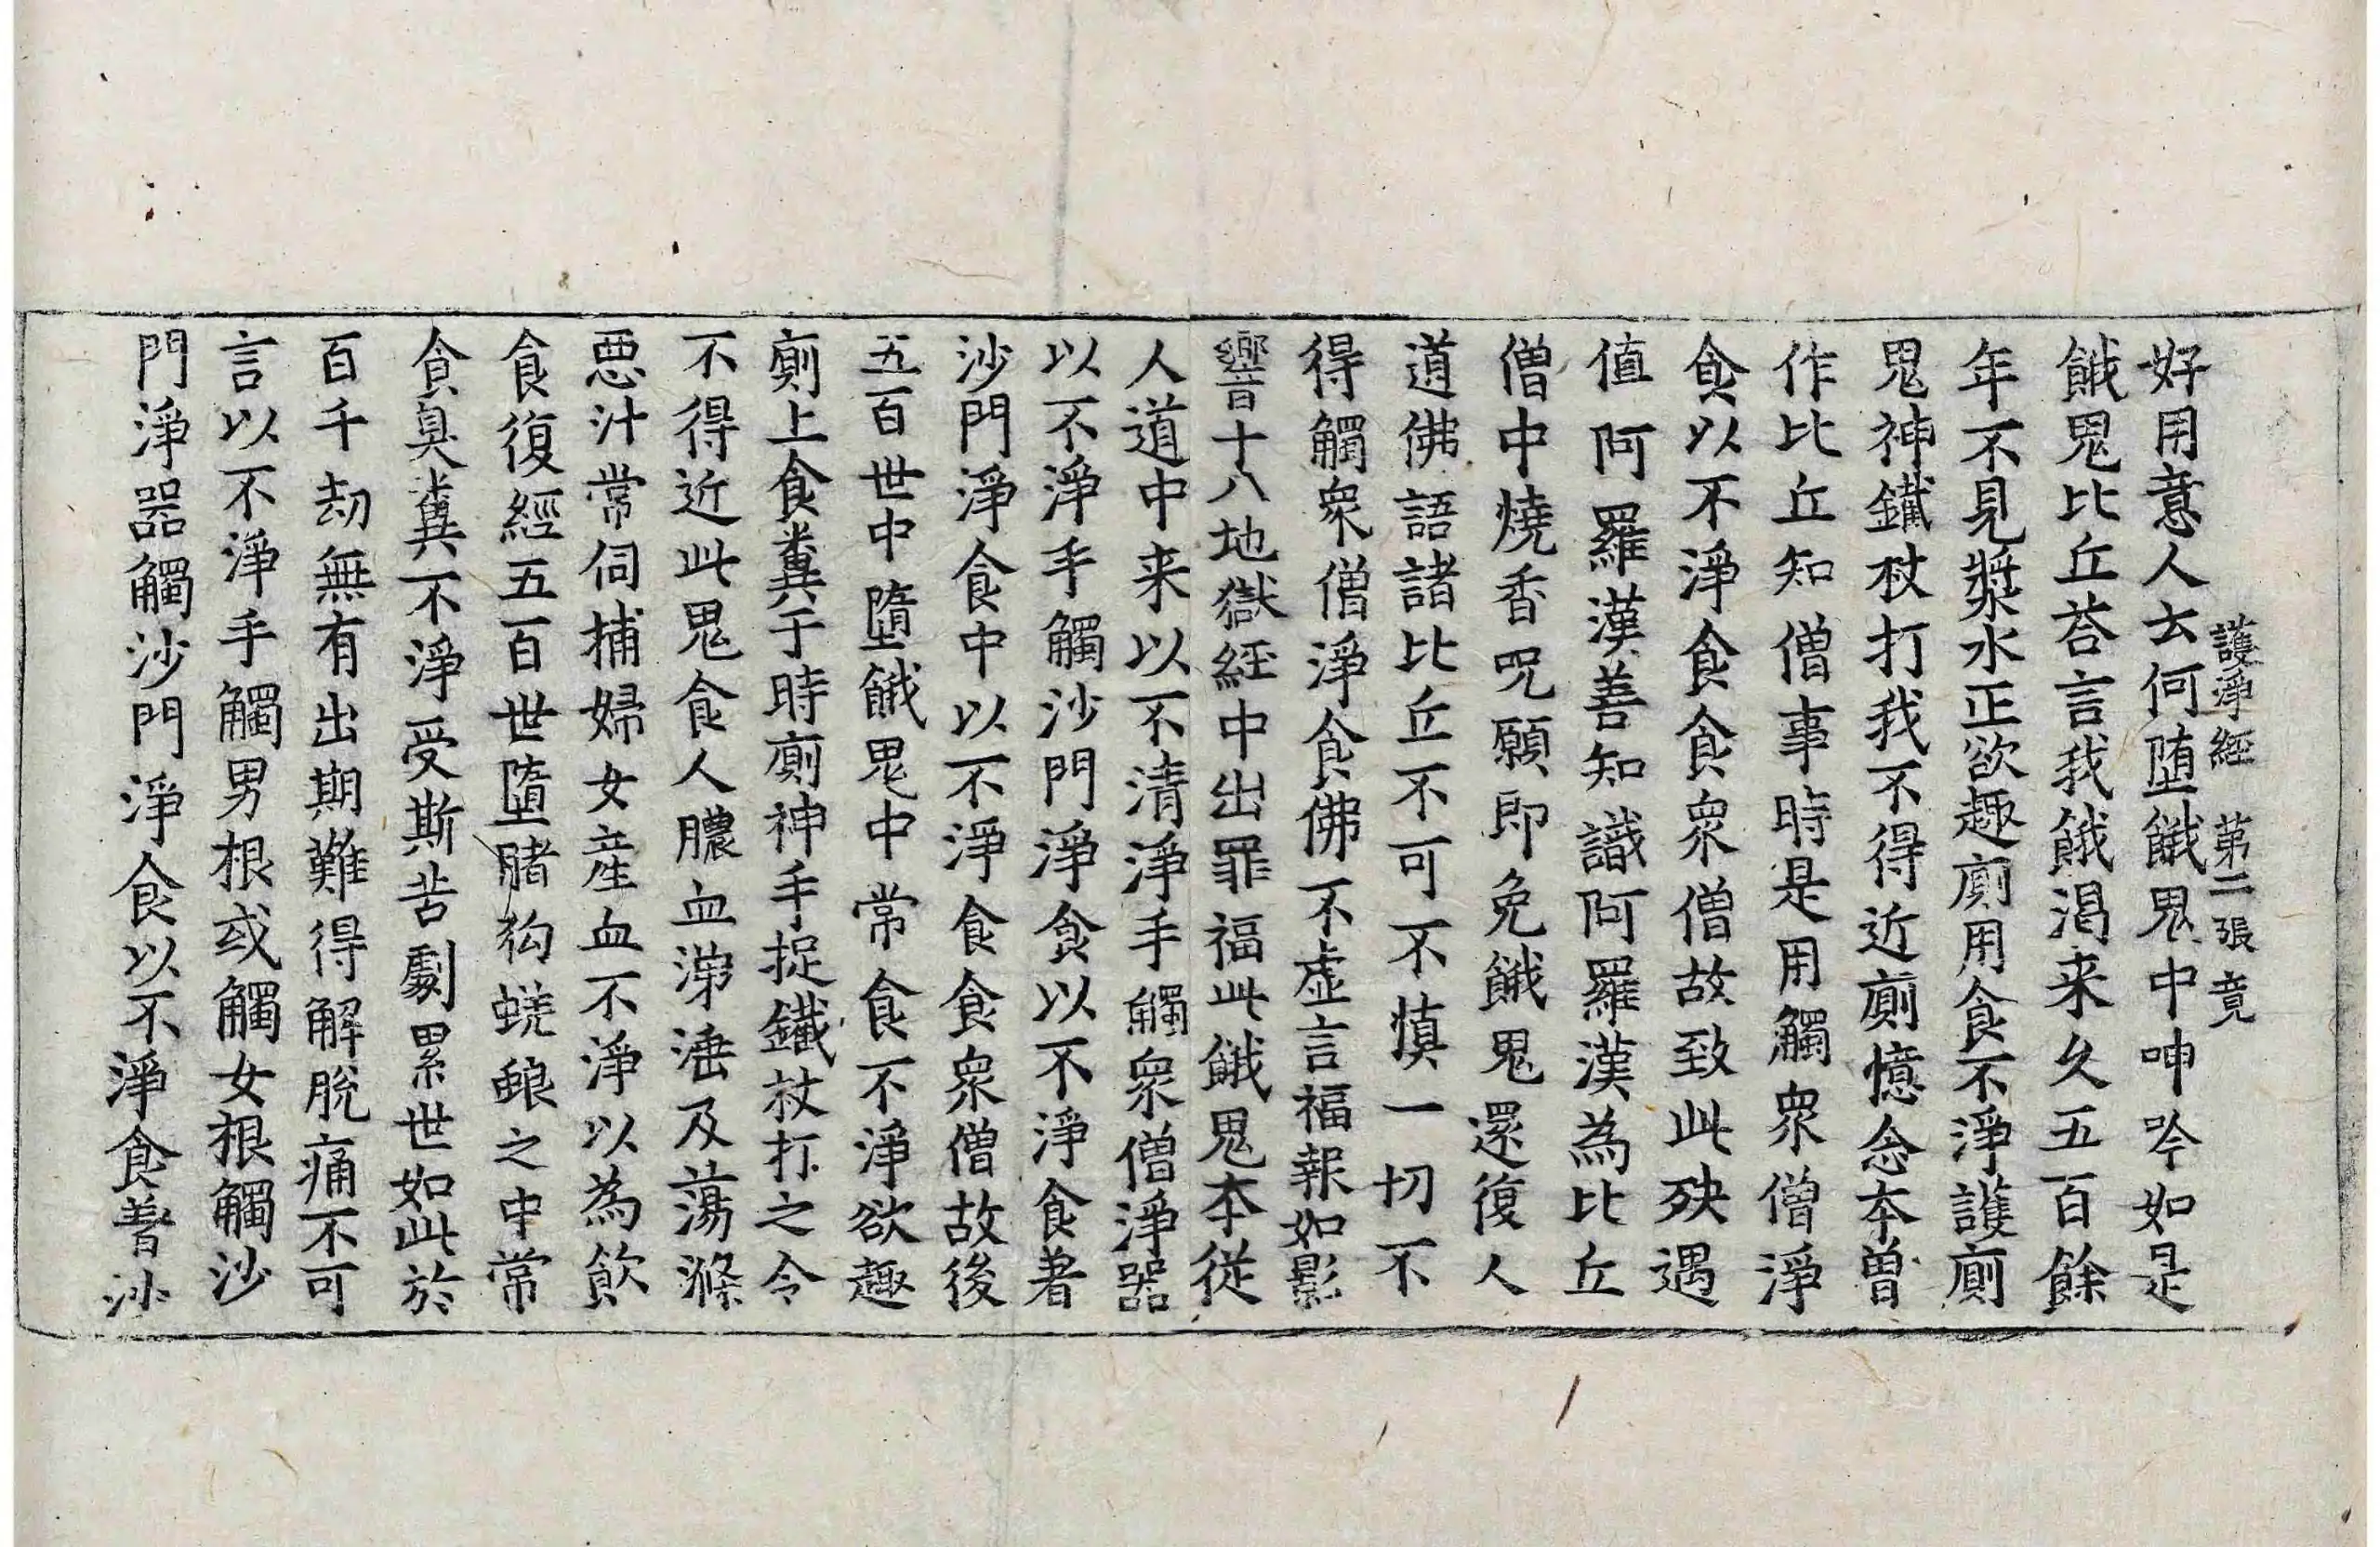 護淨經 第二張 竟
好用意人去何堕餓鬼中呻吟如是
餓鬼比丘荅言我餓渴来久五百餘
年不見漿水正欲趣廁用食不淨護廁
鬼神鐵杖打我不得近廁憶念本曾
作比丘知僧事時是用觸衆僧淨
食以不淨食食衆僧故致此殃遇
值阿羅漢善知識阿羅漢為比丘
僧中燒香呪願即免餓鬼還復人
道佛語諸比丘不可不慎一切不
得觸衆僧淨食佛不虚言福報如影
響十八地獄経中出罪福此餓鬼本從
人道中来以不清淨手觸衆僧淨器
以不淨手觸沙門淨食以不淨食著
沙門淨食中以不淨食食衆僧故後
五百世中墮餓鬼中常食不淨欲趣
廁上食糞于時廁神手捉鐵杖打之令
不得近此鬼食人膿血涕唾及蕩滌
惡汁常伺捕婦女産血不淨以為飲
食復經五百世墮猪狗蜣蜋之中常
食臭糞不淨受斯苦劇累世如此於
百千劫無有出期難得解脫痛不可
言以不淨手觸男根或觸女根觸沙
門淨器觸沙門淨食以不淨食著沙